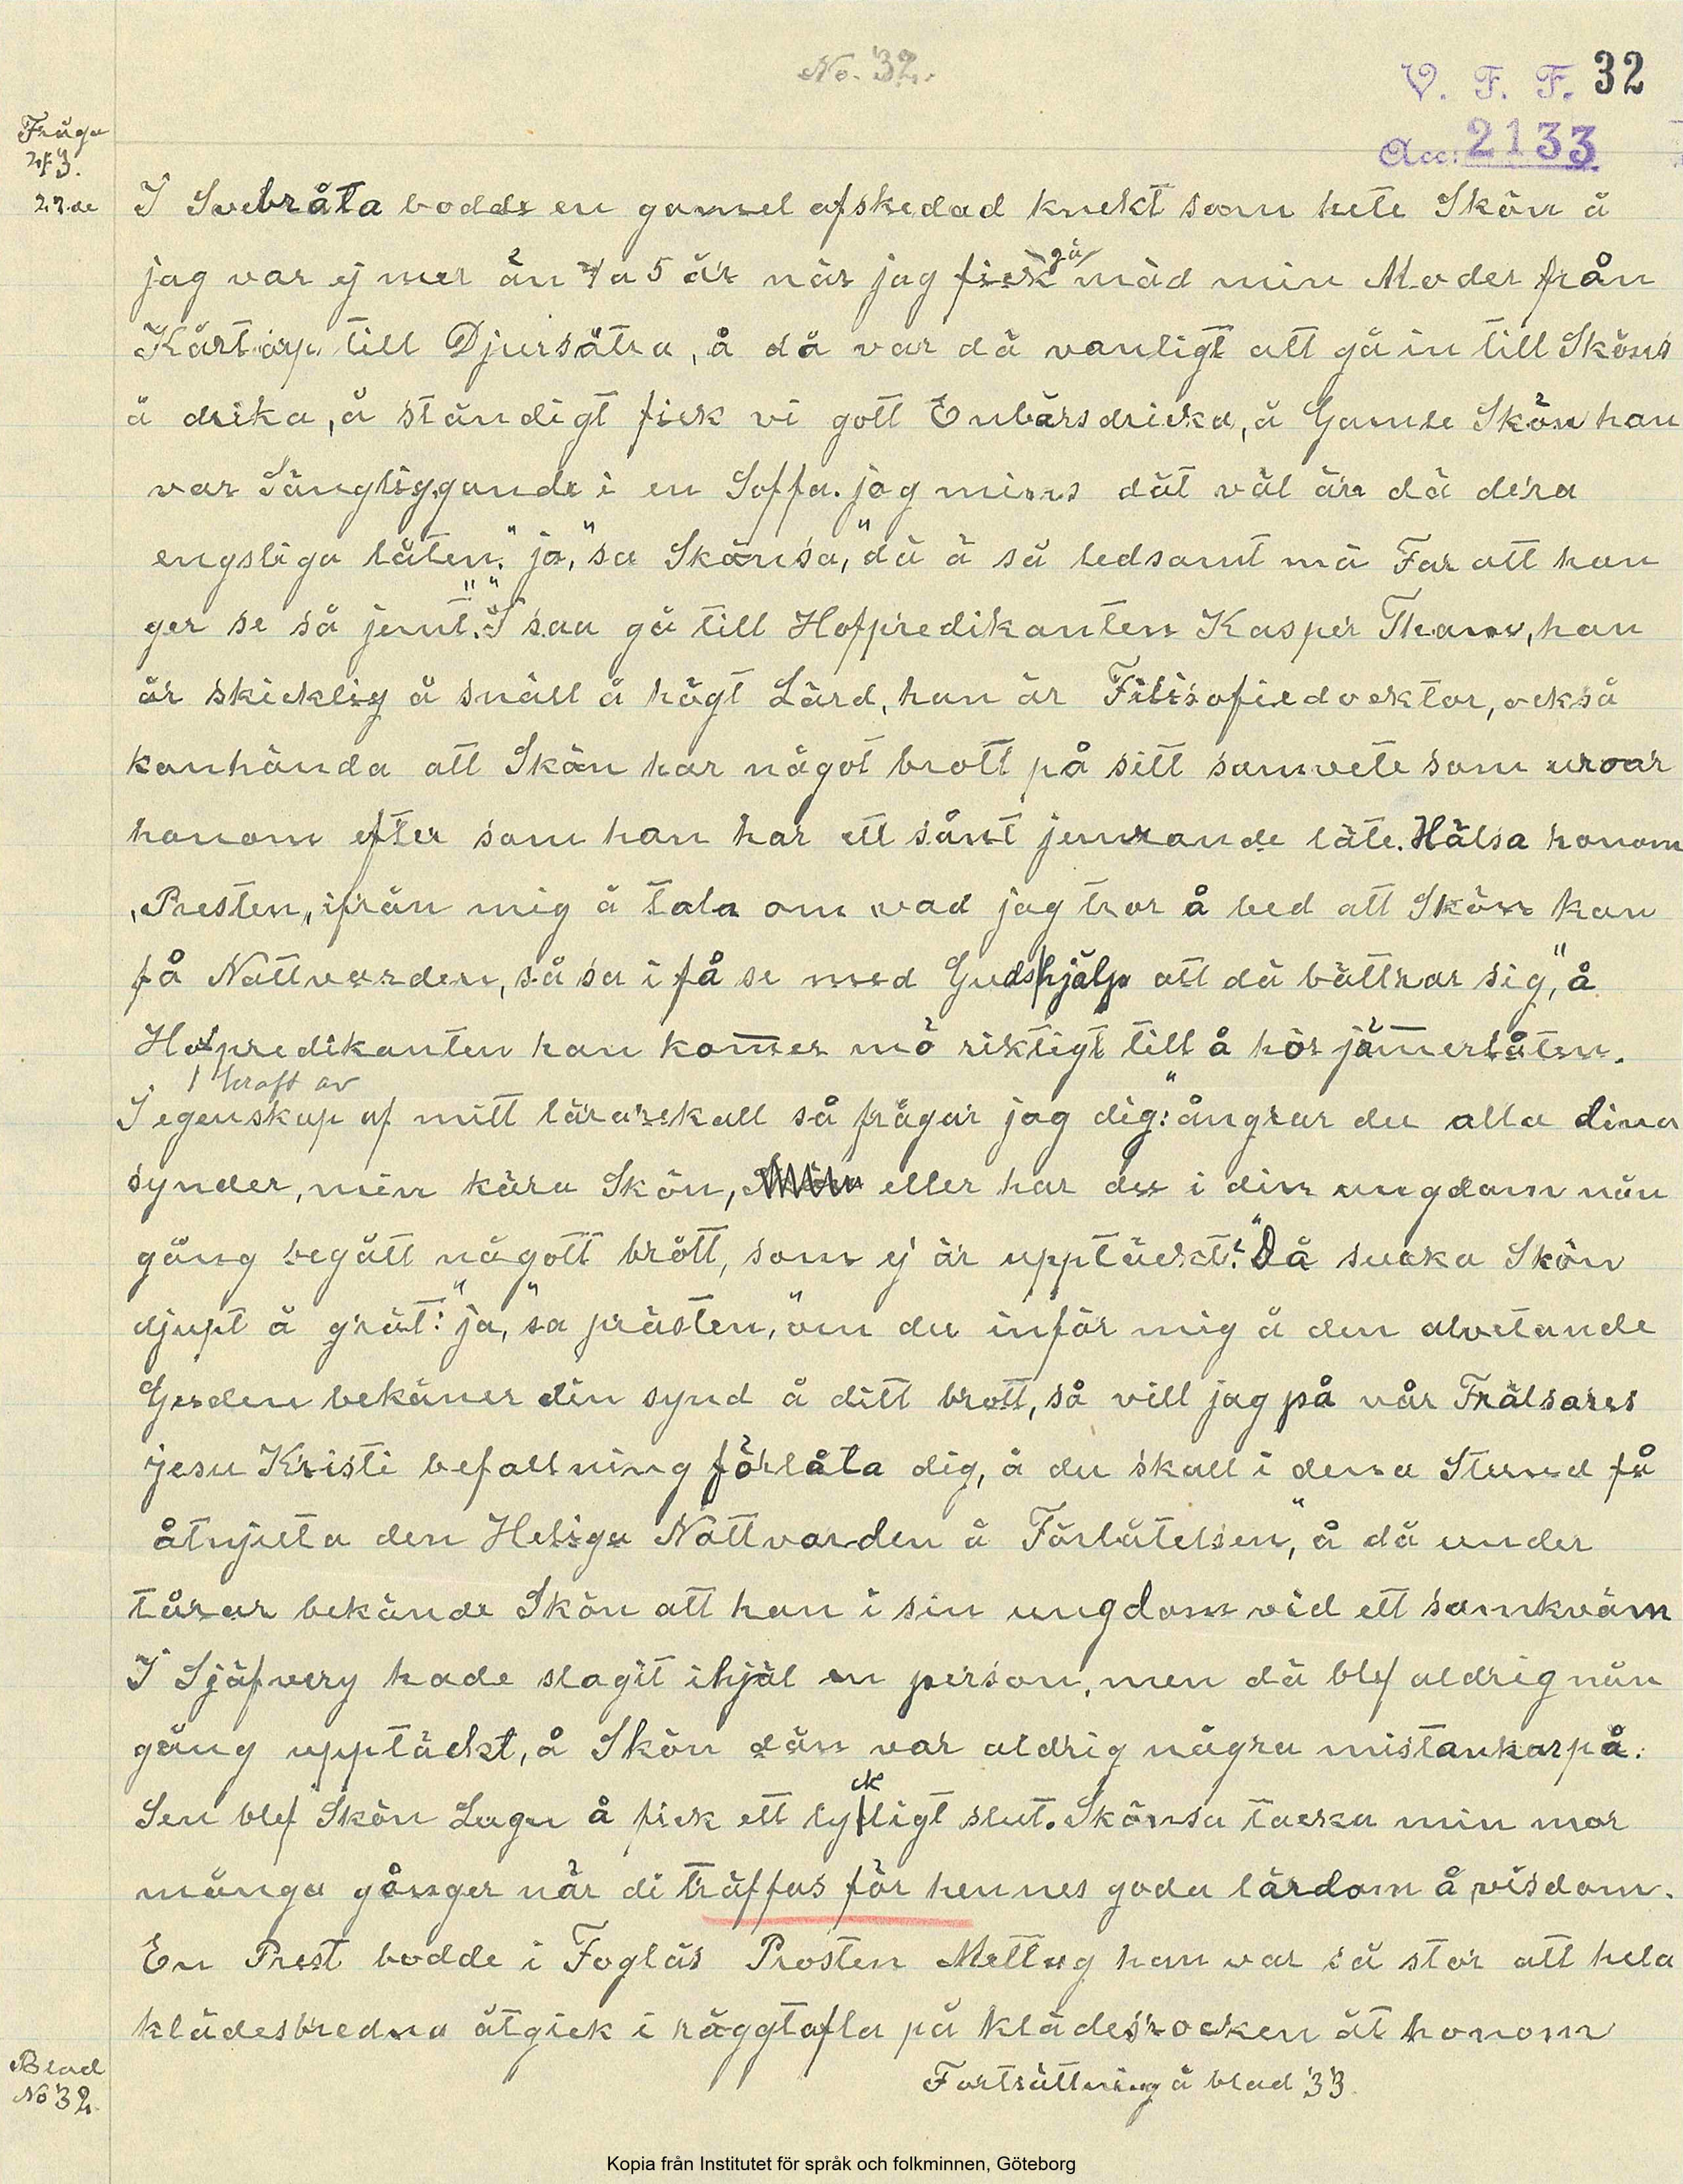 No. 32.
V. F. F. 32
Acc: 2133
Fråga
nr 3.
27.de
I Svebråta bodde en gammel afskedad knekt som hete Skön å
jag var ej mer än 4 a 5 år när jag fick gå mäd min Moder från
Kårtorp till Djursätra, å då var dä vanligt att gå in till Sköns
å drika, å ständigt fick vi gott Enbärsdricka, å Gamle Skön han
var Sängliggande i en Soffa. jag mins dät väl än dä dera
engsliga låten. "ja," sa Skönsa, "dä ä så ledsamt mä Far att han
ger se så jemt." "I saa gå till Hofpredikanten Kasper Tham, han
är skicklig å snäll å högt Lärd, han är Filisofiedocktor, också
kanhända att Skön har något brott på sitt samvete som uroar
honom efter som han har ett sånt jemrande läte. Hälsa honom
"Presten" ifrån mig å tala om vad jag tror å bed att Skön kan
få Nattvarden, så sa i få se med Guds hjälp att dä bättrar sig," å
Hofpredikanten han kommer mö riktigt till å hör jämmerlåten.
I kraft av
I egenskap af mitt lärarekall så frågar jag dig: "ångrar du alla dina
synder, min kära Skön, eller har du i din ungdom nån
gång begått någott brått, som ej är upptäckt?" Då sucka Skön
djupt å grät: "ja," sa prästen, "om du inför mig å den alvetande
Guden bekäner din synd å ditt brott, så vill jag på vår Frälsares
jesu Kristi befallning förlåta dig, å du skall i dena Stund få
åtnjuta den Heliga Nattvarden å Förlåtelsen," å då under
tårar bekände Skön att han i sin ungdom vid ett samkväm
I Sjäfvery hade slagit ihjäl en person, men dä blef aldrig nån
gång upptäckt, å Skön dän var aldrig några mistankar på.
Sen blef Skön Lugn å fick ett lyckligt slut. Skönsa tacka min mor
många gånger når di träffas för hennes goda lärdom å visdom.
En Prest bodde i Foglås Prosten Mellug han var så stor att hela
klädesbredna åtgick i räggtafla på klädesrocken åt honom
Fortsättning å blad 33
Blad
No 32.
Kopia från Institutet för språk och folkminnen, Göteborg